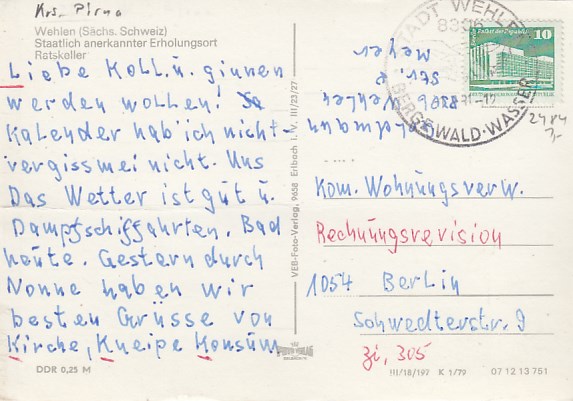 Krs. Pirna
Wehlen (Sächs. Schweiz)
Staatlich anerkannter Erholungsort
Ratskeller
Liebe Koll.u. ginnen
werden wollen!
Kalender hab'ich nicht-
vergissmei nicht. Uns
Das Wetter ist gut u.
Dampfschiffahrten. Bad
heute. Gestern durch
Nonne haben wir
besten Grüsse von
Kirche, Kneipe Konsum
DDR 0,25 M
VEB-Foto-Verlag, 9658 Erlbach i. V. III/23/27
Meyer
Str. 8
8326 Wehlen
STADT WEHLEN
BERG·WALD·WASSER
10
2484
Kom. Wohnungsverw.
Rechnungsrevision
1054 Berlin
Schwedterstr. 9
Zi, 305
III/18/197 K 1/79 07 12 13 751